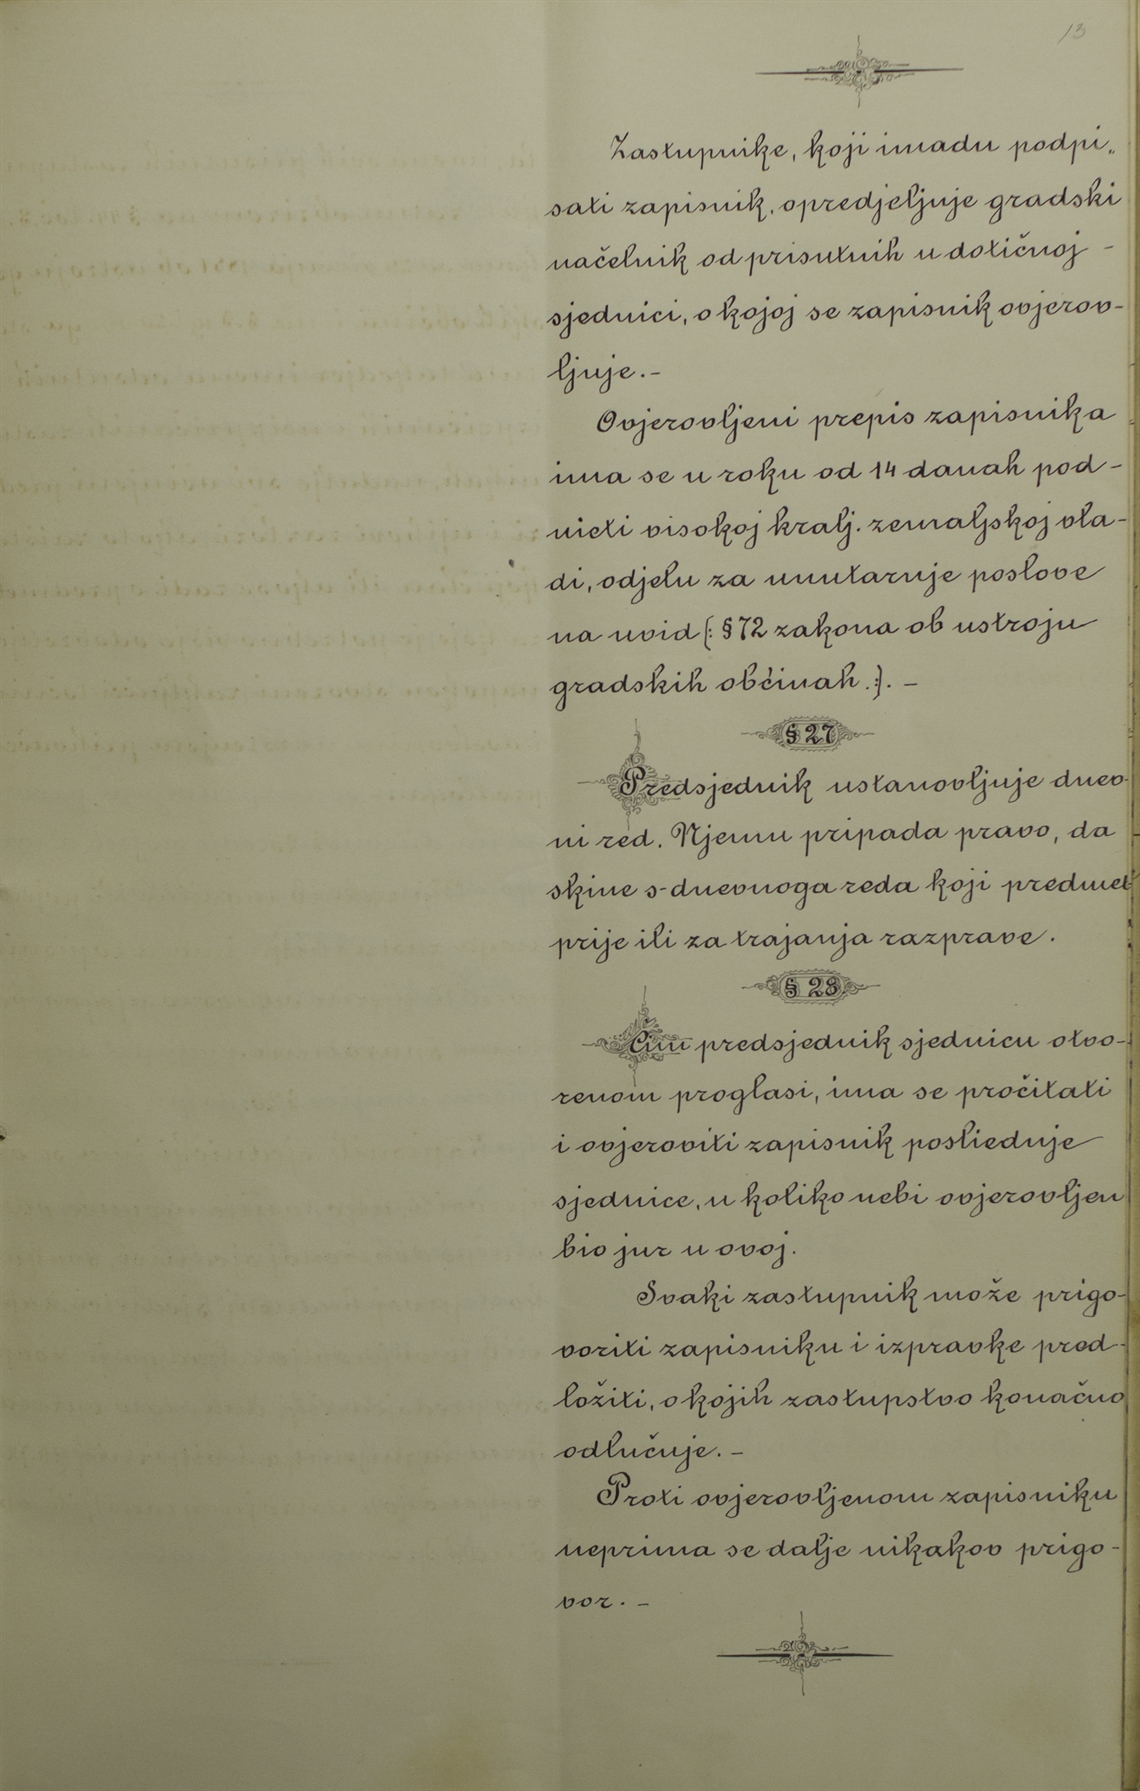 13
Zastupnike, koji imadu podpi„
sati zapisnik, opredjeljuje gradski
načelnik od prisutnih u dotičnoj -
sjednici, o kojoj se zapisnik ovjerov-
ljuje.-
Ovjerovljeni prepis zapisnika
ima se u roku od 14 danah pod-
nieti visokoj kralj. zemaljskoj vla-
di, odjelu za unutarnje poslove
na uvid (: § 72 zakona ob ustroju
gradskih občinah :). -
§ 27
Predsjednik ustanovljuje dnev-
ni red. Njemu pripada pravo, da
skine s-dnevnoga reda koji predmet
prije ili za trajanja razprave.
§ 28
Čim predsjednik sjednicu otvo-
renom proglasi, ima se pročitati
i ovjeroviti zapisnik posliednje
sjednice, u koliko nebi ovjerovljen
bio jur u ovoj.
Svaki zastupnik može prigo-
voriti zapisniku i izpravke pred-
ložiti, o kojih zastupstvo konačno
odlučuje. -
Proti ovjerovljenom zapisniku
neprima se dalje nikakov prigo-
vor. -